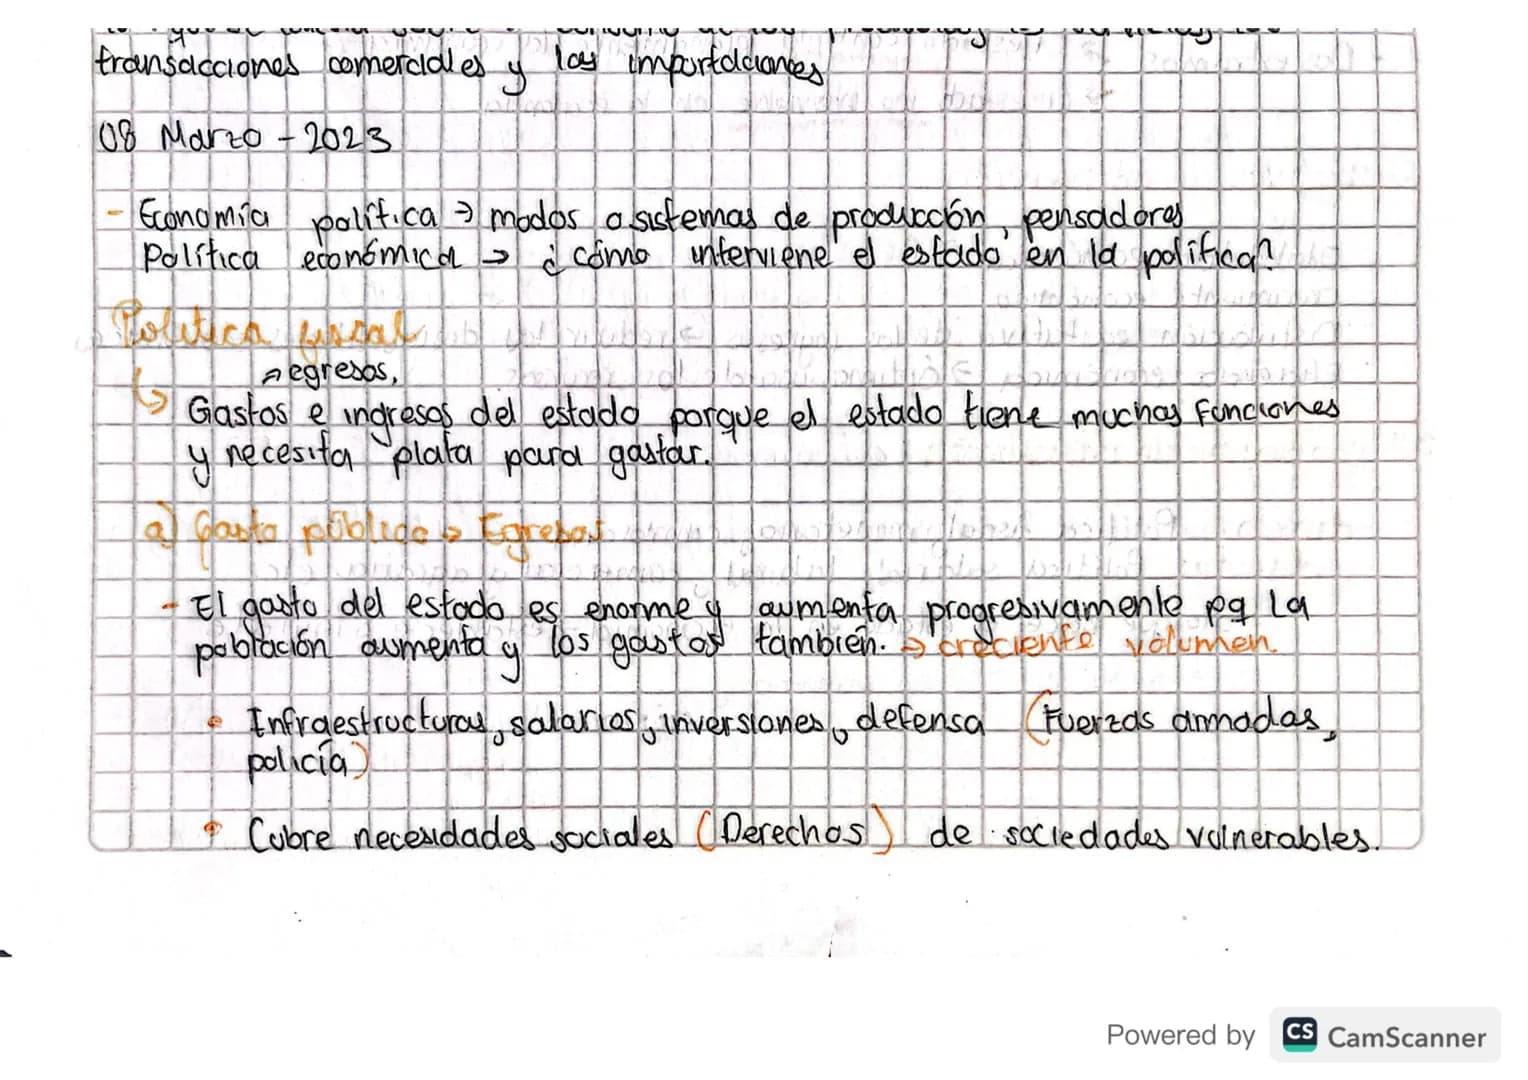 transacciones comerciales y las importaciones
08 Marzo - 2023
- Economía política → modos o sistemas de producción, pensadores
Política económica → ¿cómo interviene el estado en la política?
Política fiscal
→ egresos,
↳ Gastos e ingresos del estado porque el estado tiene muchas funciones
y necesita plata para gastar.
a) Gasto público → Egresos
- El gasto del estado es enorme y aumenta progresivamente pq la
población aumenta y los gastos también. → creciente volumen
• Infraestructuras, salarios, inversiones, defensa (Fuerzas armadas,
policía)
• Cubre necesidades sociales (Derechos) de sociedades vulnerables.
Powered by CS CamScanner